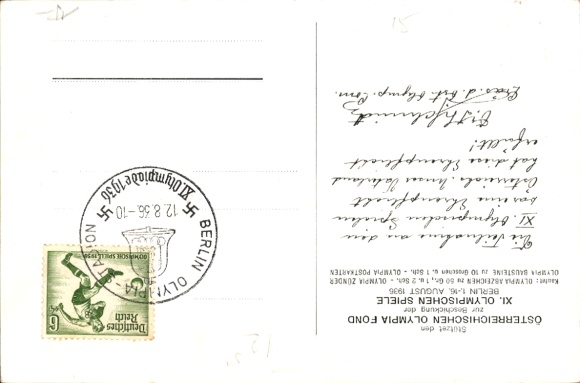 Stützet den
ÖSTERREICHISCHEN OLYMPIA FOND
zur Beschickung der
XI. OLYMPISCHEN SPIELE
BERLIN 1.-16. AUGUST 1936
Kaufet: OLYMPIA ABZEICHEN zu 50 Gr., 1 u. 2 Sch. - OLYMPIA BÄNDER
OLYMPIA BAUSTEINE zu 10 Groschen u. 1 Sch. - OLYMPIA POSTKARTEN
Die Teilnahme an den
XI. Olympischen Spielen
war eine Ehrenpflicht
Österreichs. Unser Vaterland
hat diese Ehrenpflicht
erfüllt!
Präs. d. Öst. Olymp. Com.
Deutsches
Reich
6
OLYMPISCHE SPIELE 1936
BERLIN OLYMPIA-STADION
12.8.36.-10
XI. Olympiade 1936